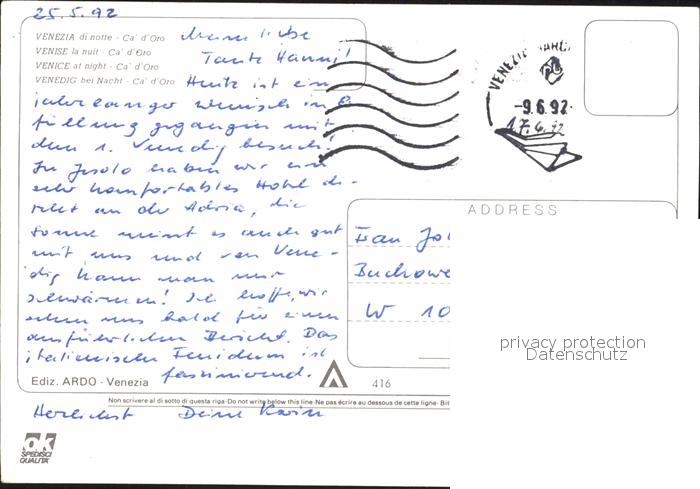 25.5.92
VENEZIA di notte - Ca' d'Oro
VENISE la nuit - Ca' d'Oro
VENICE at night - Ca' d'Oro
VENEDIG bei Nacht - Ca' d'Oro
Meine liebe
Tante Hanni!
Heute ist ein
jahrelanger Wunsch in Er-
füllung gegangen mit
dem 1. Venedig besuch!
In Jesolo haben wir ein
sehr komfortables Hotel di-
rekt an der Adria, die
Sonne meint es auch gut
mit uns und von Vene-
dig kann man nur
schwärmen! Ich hoffe, wir
sehen uns bald für einen
ausführlichen Bericht. Das
italienische ist
faszinierend.
Herzlichst Deine Karin
VENEZIA MARC
-9.6.92-
17.6.92
ADDRESS
Frau Jo
Buchowe
W 10
privacy protection
Datenschutz
Ediz. ARDO - Venezia
416
Non scrivere al di sotto di questa riga-Do not write below this line-Ne pas écrire au dessous de cette ligne- Bit
ok
SPEDISCI
QUALITÀ